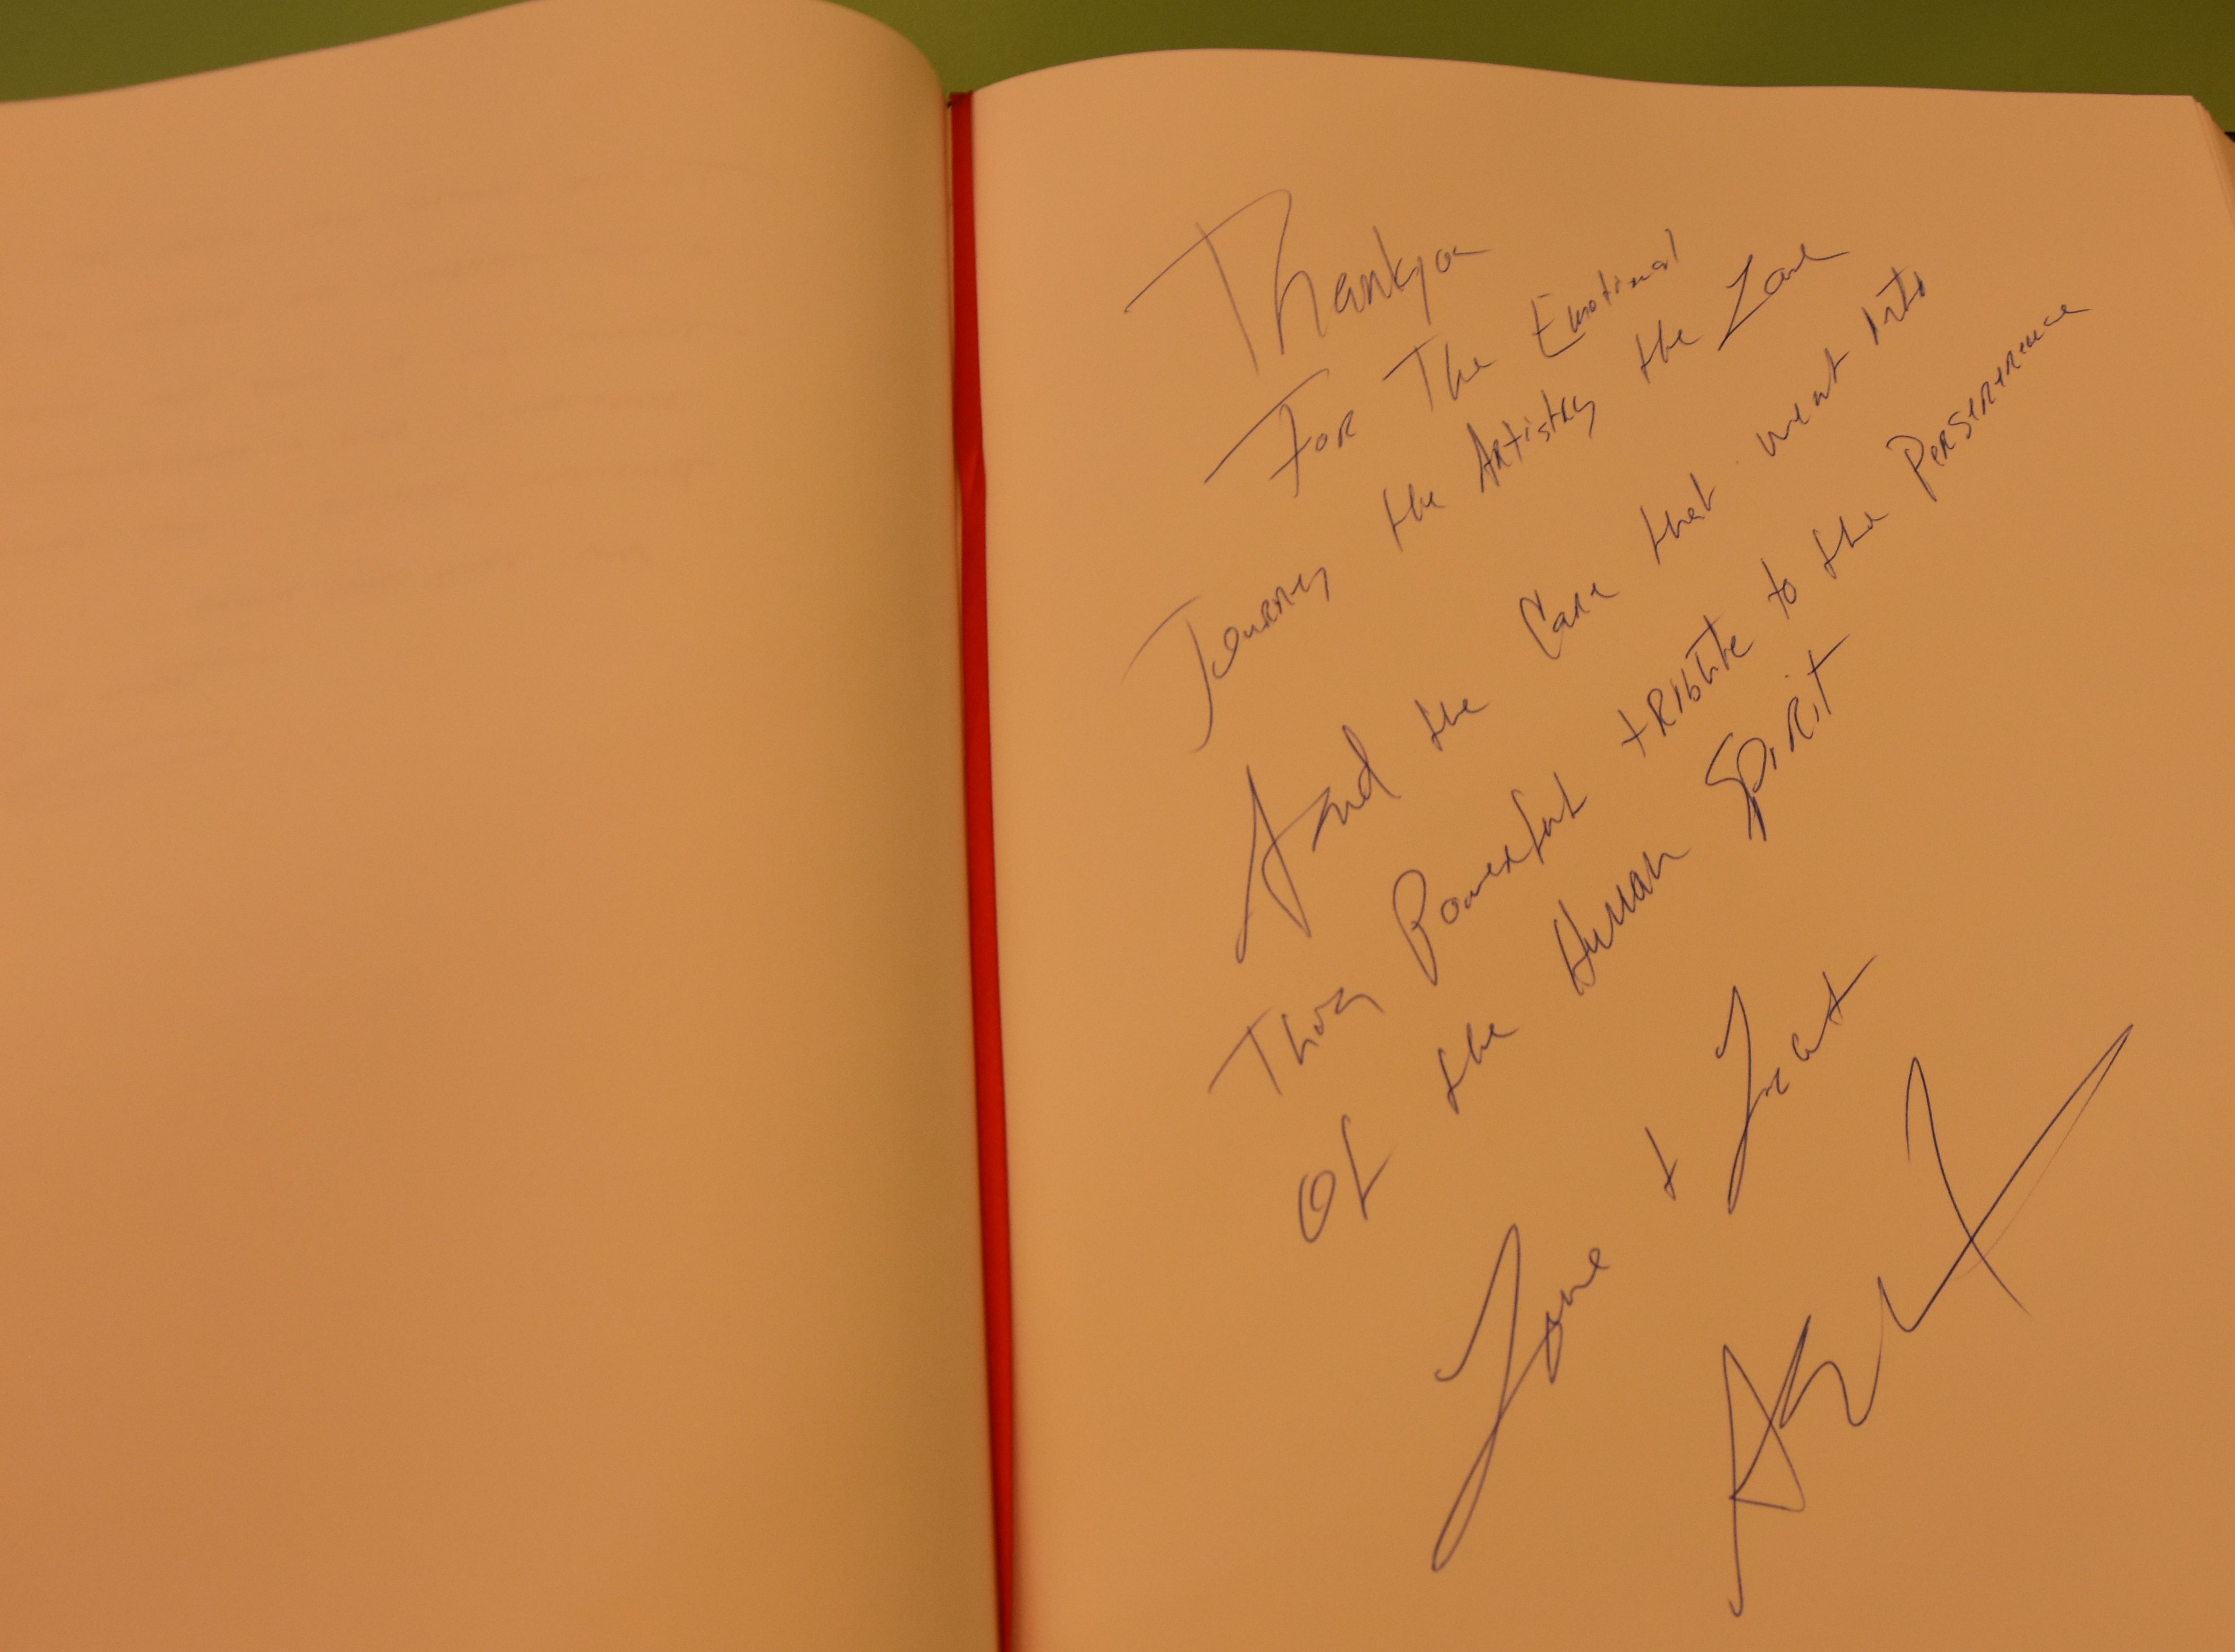 Thankyou
For The Emotional
Journey the Artistry the Love
And the Care that went into
This Powerful tribute to the Perserence
Of the Human Spirit
Love &